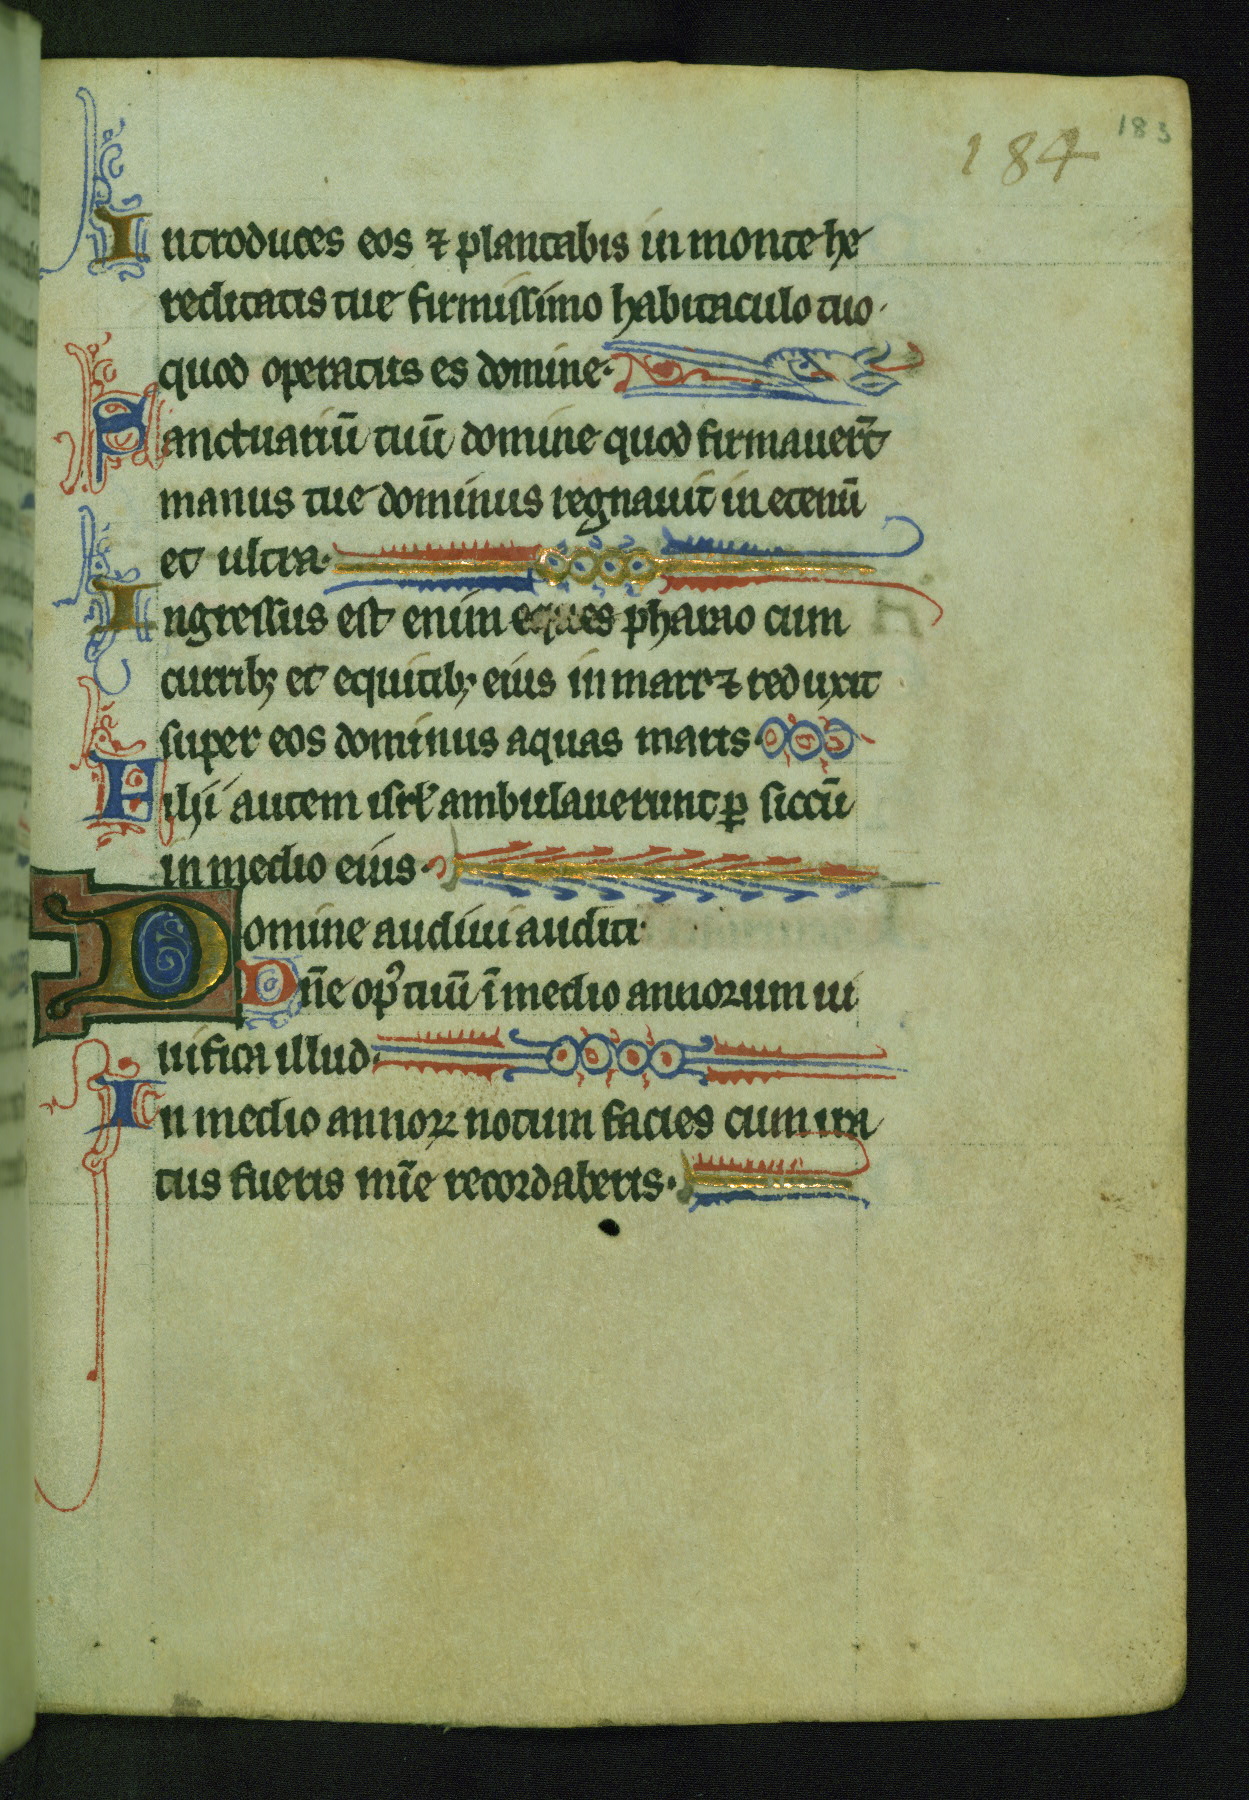 184 183
Introduces eos ⁊ plantabis in monte he
reditatis tue firmissimo habitaculo tuo·
quod operatus es domine·
Sanctuariū tuū domine quod firmauer̄t
manus tue dominus regnauit in eternū
et ultra·
Ingressus est enim eques pharao cum
curribꝫ et equitibꝫ eius in mare ⁊ reduxit
super eos dominus aquas maris·
Filii autem isrł ambulauerunt ꝑ siccū
in medio eius·
Domine audiui auditi·
Dn̄e op̾ tuū ī medio annorum ui
uifica illud·
In medio annoꝝ notum facies cum ira
tus fueris mīe recordaberis·